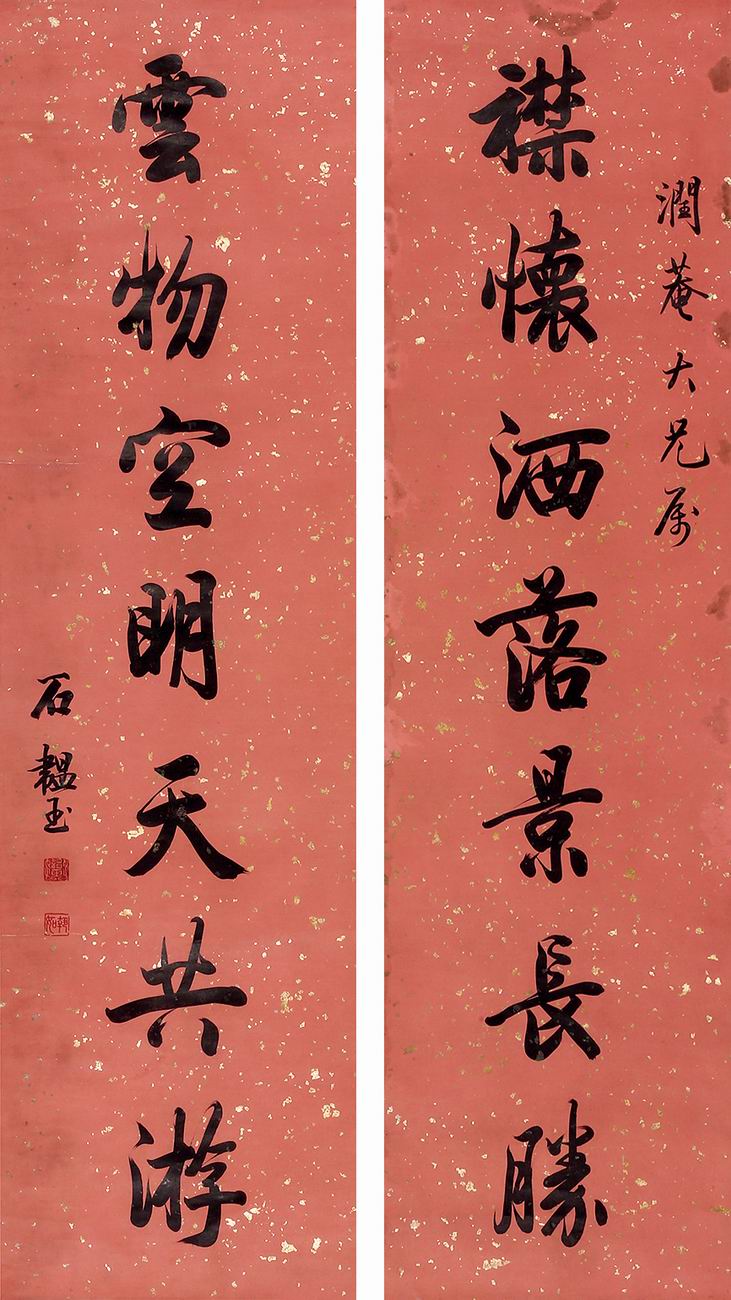 潤菴大兄屬
襟懷洒落景長勝
雲物空明天共游
石韞玉